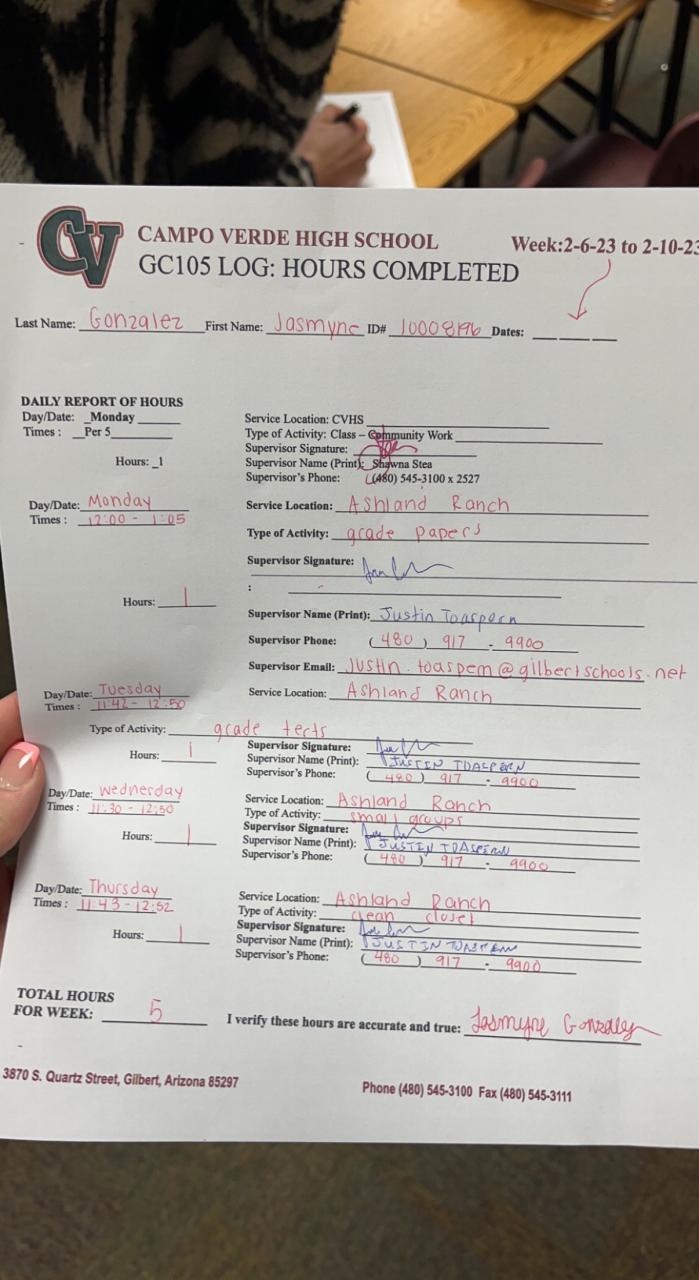 CV
CAMPO VERDE HIGH SCHOOL
Week:2-6-23 to 2-10-23
GC105 LOG: HOURS COMPLETED
Last Name: Gonzalez First Name: Jasmyne ID# 10008196 Dates:
DAILY REPORT OF HOURS
Day/Date: Monday
Times : Per 5
Hours: 1
Service Location: CVHS
Type of Activity: Class – Community Work
Supervisor Signature:
Supervisor Name (Print): Shawna Stea
Supervisor's Phone: (480) 545-3100 x 2527
Day/Date: Monday
Times : 12:00 - 1:05
Hours: 1
Service Location: Ashland Ranch
Type of Activity: grade papers
Supervisor Signature:
:
Supervisor Name (Print): Justin Toaspern
Supervisor Phone: (480) 917 - 9900
Supervisor Email: justin.toaspern@gilbertschools.net
Day/Date: Tuesday
Times : 11:42 - 12:50
Service Location: Ashland Ranch
Type of Activity: grade tests
Hours: 1
Supervisor Signature:
Supervisor Name (Print): JUSTIN TOASPERN
Supervisor's Phone: (480) 917 - 9900
Day/Date: Wednesday
Times : 11:30 - 12:50
Hours: 1
Service Location: Ashland Ranch
Type of Activity: small groups
Supervisor Signature:
Supervisor Name (Print): JUSTIN TOASPERN
Supervisor's Phone: (480) 917 - 9900
Day/Date: Thursday
Times : 11:43 - 12:52
Hours: 1
Service Location: Ashland Ranch
Type of Activity: clean closet
Supervisor Signature:
Supervisor Name (Print): JUSTIN TOASPERN
Supervisor's Phone: (480) 917 - 9900
TOTAL HOURS
FOR WEEK: 5
I verify these hours are accurate and true: Jasmyne Gonzalez
3870 S. Quartz Street, Gilbert, Arizona 85297
Phone (480) 545-3100 Fax (480) 545-3111